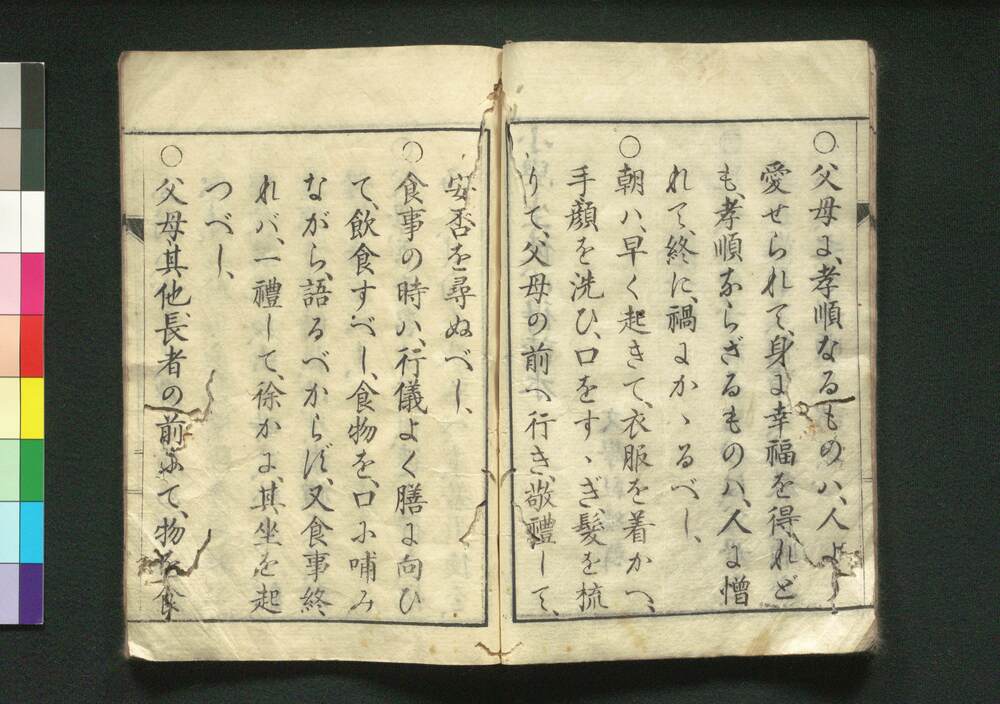 ○父母に、孝順なるものハ、人に
愛せられて、身に幸福を得れど
も、孝順ならざるものハ、人に憎
れて、終に、禍にかゝるべし、
○朝ハ、早く起きて、衣服を着かへ、
手、顔を洗ひ、口をすゝぎ、髪を梳
りて、父母の前へ行き、敬禮して、
安否を尋ぬべし、
○食事の時ハ、行儀よく膳に向ひ
て、飲食すべし、食物を、口に哺み
ながら、語るべからず、又食事終
れバ、一禮して、徐かに、其坐を起
つべし、
○父母、其他、長者の前にて、物を食